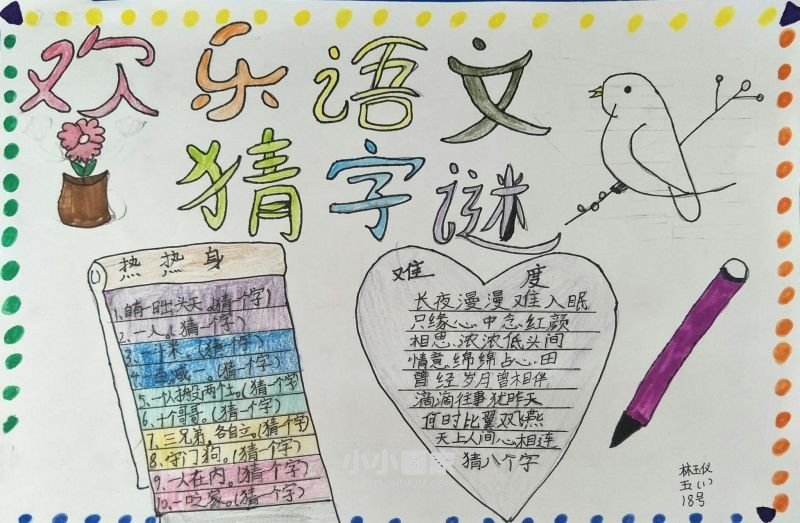 欢乐语文
猜字谜
热热身
1.自有一日出头天。(猜一个字)
2.一人。(猜一个字)
3.一十来。(猜一个字)
4.百减一。(猜一个字)
5.一队投两住。(猜一个字)
6.十哥哥。(猜一个字)
7.三兄弟,各自立。(猜一个字)
8.守门狗。(猜一个字)
9.一人在内。(猜个字)
10.一口之家。(猜个字)
难度
长夜漫漫难入眠
只缘心中念红颜
相思浓浓低头间
情意绵绵占心田
曾经岁月曾相伴
滴滴往事犹昨天
何时比翼双燕
天上人间心相连
猜八个字
林玉仪
五(1)
18号
小小画家